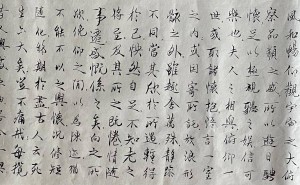 風和暢仰觀宇宙之大俯
察品類之盛所以遊目騁
懷足以極視聽之娛信可
樂也夫人之相與俯仰一
世或取諸懷抱悟言一室
之內或因寄所託放浪形
骸之外雖趣舍萬殊靜躁
不同當其欣於所遇暫得
於己快然自足不知老之
將至及其所之既惓情隨
事遷感慨係之矣向之所
欣俛仰之間以為陳迹猶
不能不以之興懷況修短
隨化終期於盡古人云死
生亦大矣豈不痛哉每攬